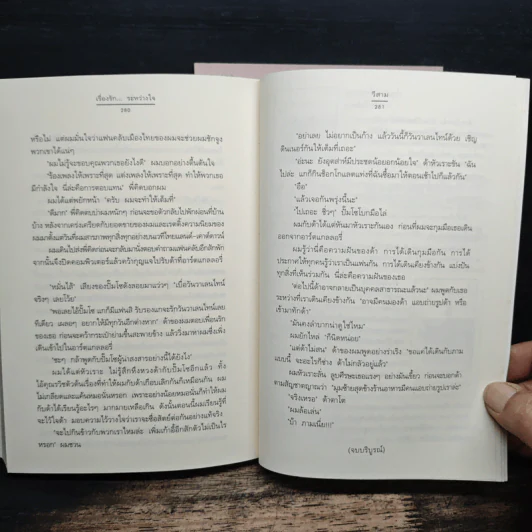 เรื่องรัก... ระหว่างใจ
280
หรือไม่ แต่ผมมั่นใจว่าแฟนคลับเมืองไทยของผมจะช่วยผมชักจูง
พวกเขาได้แน่ๆ
"ผมไม่รู้จะขอบคุณพวกเธอยังไงดี" ผมบอกอย่างตื้นตันใจ
"ร้องเพลงให้เพราะที่สุด แต่งเพลงให้เพราะที่สุด ทำให้พวกเธอ
มีกำลังใจ นี่ล่ะคือการตอบแทน" พี่คิดบอกผม
ผมได้แต่พยักหน้า "ครับ ผมจะทำให้เต็มที่"
"ดีมาก" พี่คิดตบบ่าผมหนักๆ ก่อนจะขอตัวกลับไปพักผ่อนที่บ้าน
ผมเดินไปส่งพี่คิดก่อนจะกลับมานั่งตอบคำถามแฟนคลับอีกสักพัก
"หมั่นไส้" เสียงของปั๊มโซดังลอยมาแว่วๆ "เบื่อวันวาเลนไทน์
จริงๆ เลยโว้ย"
"พอเลยไอ้ปั๊มโซ แกก็มีแฟนสิ รับรองแกจะรักวันวาเลนไทน์เลย
ทีเดียว เผลอๆ อยากให้มีทุกวันอีกต่างหาก" ด้าของผมตอบเพื่อนรัก
เดินเข้าไปในอาร์ตแกลลอรี่
ผมได้แต่หัวเราะ ไม่รู้สึกหึงหวงด้ากับปั๊มโซอีกแล้ว ทั้ง
"จะไปกินข้าวกับพวกเราไหมล่ะ เพิ่มเก้าอี้อีกสักตัวไม่เป็นไร
หรอก" ผมชวน
วีสาม
281
"อย่าเลย ไม่อยากเป็นก้าง แล้ววันนี้ก็วันวาเลนไทน์ด้วย เชิญ
ดินเนอร์กันให้เต็มที่เถอะ"
"อ่ะนะ ยังอุตส่าห์มีประชดน้อยอกน้อยใจ" ด้าหัวเราะขัน "ฉัน
ไปล่ะ แกก็กินช็อกโกแลตแท่งที่ฉันซื้อมาให้ตอนเช้าไปก็แล้วกัน"
"อือ"
"แล้วเจอกันพรุ่งนี้นะ"
"ไปเถอะ ชิ่วๆ" ปั๊มโซโบกมือไล่
ผมกับด้าได้แต่หันมาหัวเราะกันเอง ก่อนที่ผมจะกุมมือเธอเดิน
ออกจากอาร์ตแกลลอรี่
ผมรู้ว่านี่คือความฝันของด้า การได้เดินกุมมือกัน การได้
ประกาศให้ทุกคนรู้ว่าเราเป็นแฟนกัน การได้เดินเคียงข้างกัน แบ่งปัน
ทุกสิ่งที่เห็นร่วมกัน นี่ล่ะคือความฝันของเธอ
"ต่อไปนี้ด้าอาจกลายเป็นบุคคลสาธารณะแล้วนะ" ผมพูดกับเธอ
ระหว่างที่เราเดินเคียงข้างกัน "อาจมีคนมองด้า แอบถ่ายรูปด้า หรือ
เข้ามาทักด้า"
"มันคงลำบากน่าดูใช่ไหม"
ผมยักไหล่ "ก็นิดหน่อย"
"แต่ด้าไม่สน" ด้าของผมพูดอย่างร่าเริง "ขอแค่ได้เดินกับภาม
แอบนี้ จะอะไรก็ช่าง ด้าไม่กลัวอยู่แล้ว"
"จริงเหรอ" ด้าตาโต
"ผมล้อเล่น"
"บ้า ภามเนี่ย!!!"
(จบบริบูรณ์)